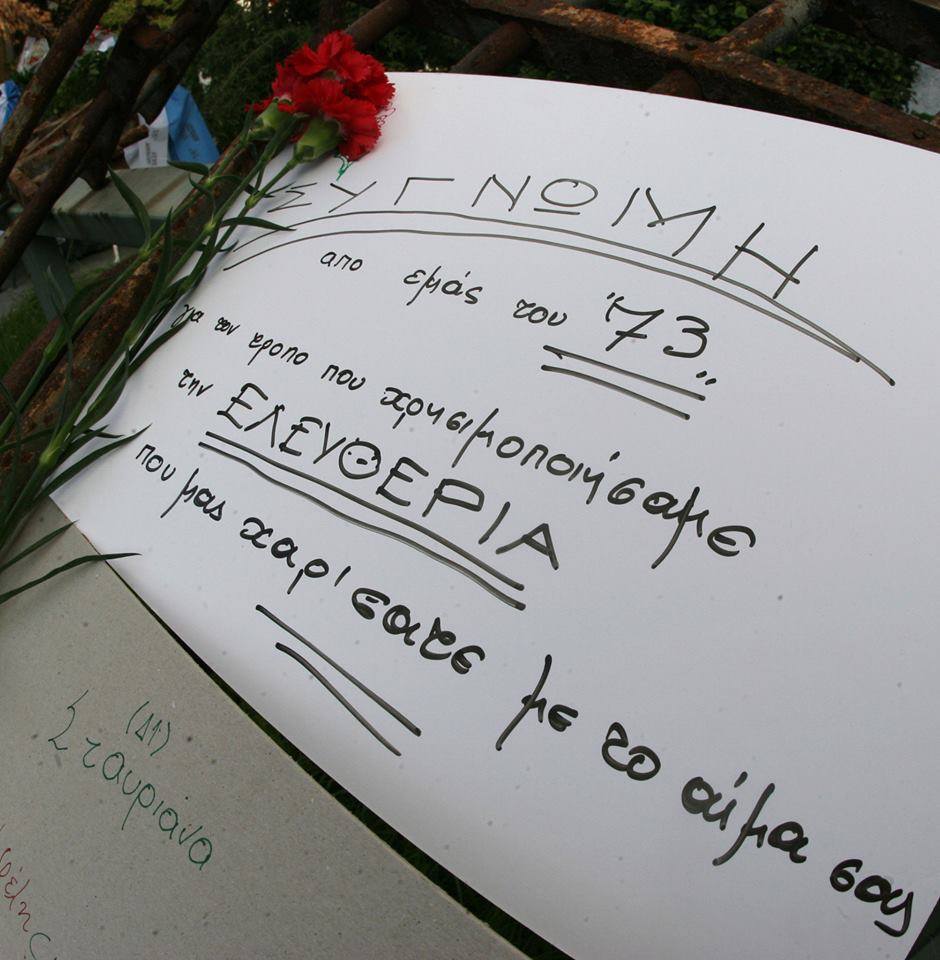 ΣΥΓΝΩΜΗ
απο εμάς του '73"
για τον τροπο που χρησιμοποιήσαμε
την ΕΛΕΥΘΕΡΙΑ
που μας χαρίσατε με το αίμα σας
(Δ1)
Σταυριάνα